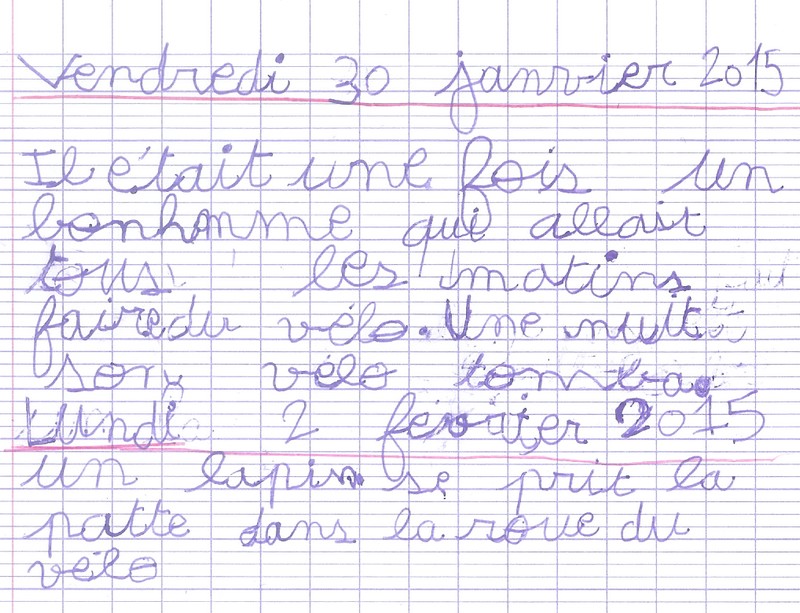 Vendredi 30 janvier 2015
Il était une fois un
bonhomme qui allait
tous les matins
faire du vélo. Une nuit
son vélo tomba.
Lundi 2 février 2015
un lapin se prit la
patte dans la roue du
vélo